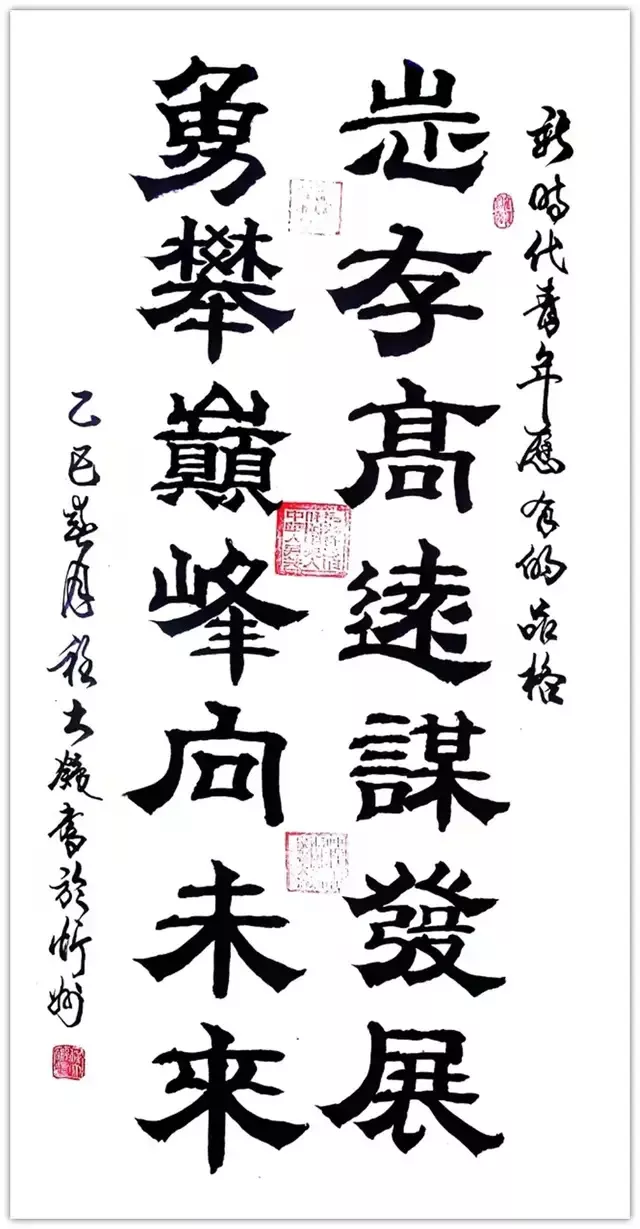 新時代青年應有的品格
志存髙遠謀發展
勇攀巔峰向未來
乙巳春月程大書於忻州